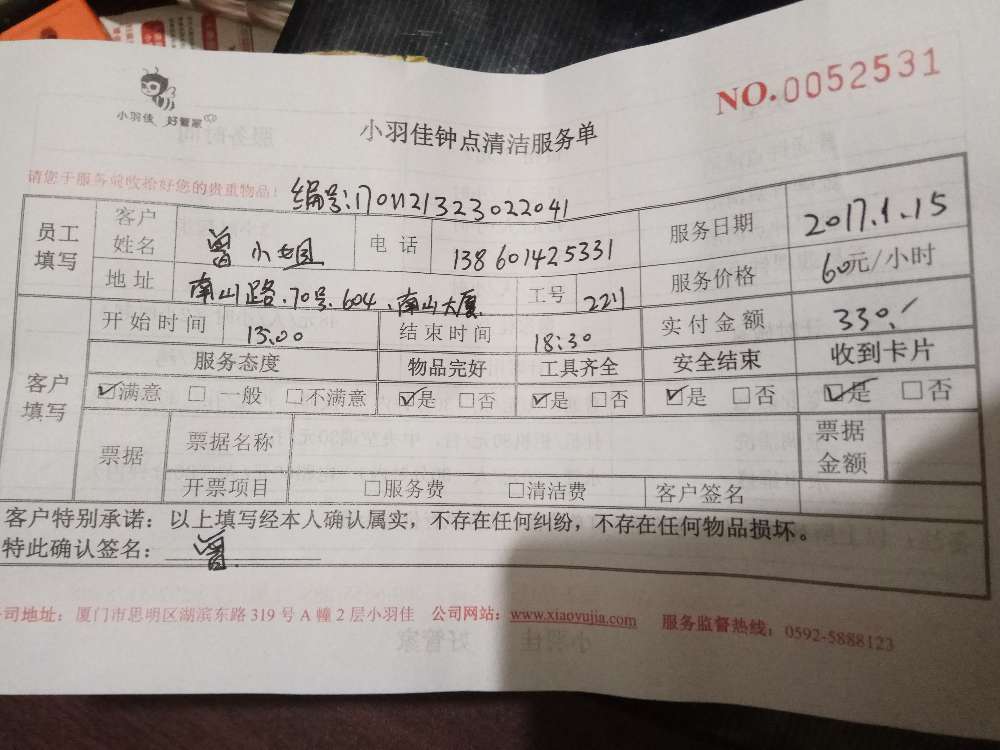 小羽佳 好管家
NO.0052531
小羽佳钟点清洁服务单
请您于服务前收拾好您的贵重物品!
编号:170112132302204​1
员工填写 客户姓名 曾小姐 电话 138601425331 服务日期 2017.1.15
地址 南山路.70号.604、南山大厦 工号 2211 服务价格 60元/小时
客户填写 开始时间 13:00 结束时间 18:30 实付金额 330.
服务态度 物品完好 工具齐全 安全结束 收到卡片
☑满意 □一般 □不满意 ☑是 □否 ☑是 □否 ☑是 □否 ☑是 □否
票据 票据名称 票据金额
开票项目 □服务费 □清洁费 客户签名
客户特别承诺:以上填写经本人确认属实,不存在任何纠纷,不存在任何物品损坏。
特此确认签名: 曾
司地址:厦门市思明区湖滨东路 319 号 A 幢 2 层小羽佳 公司网站:www.xiaoyujia.com 服务监督热线:0592-5888123